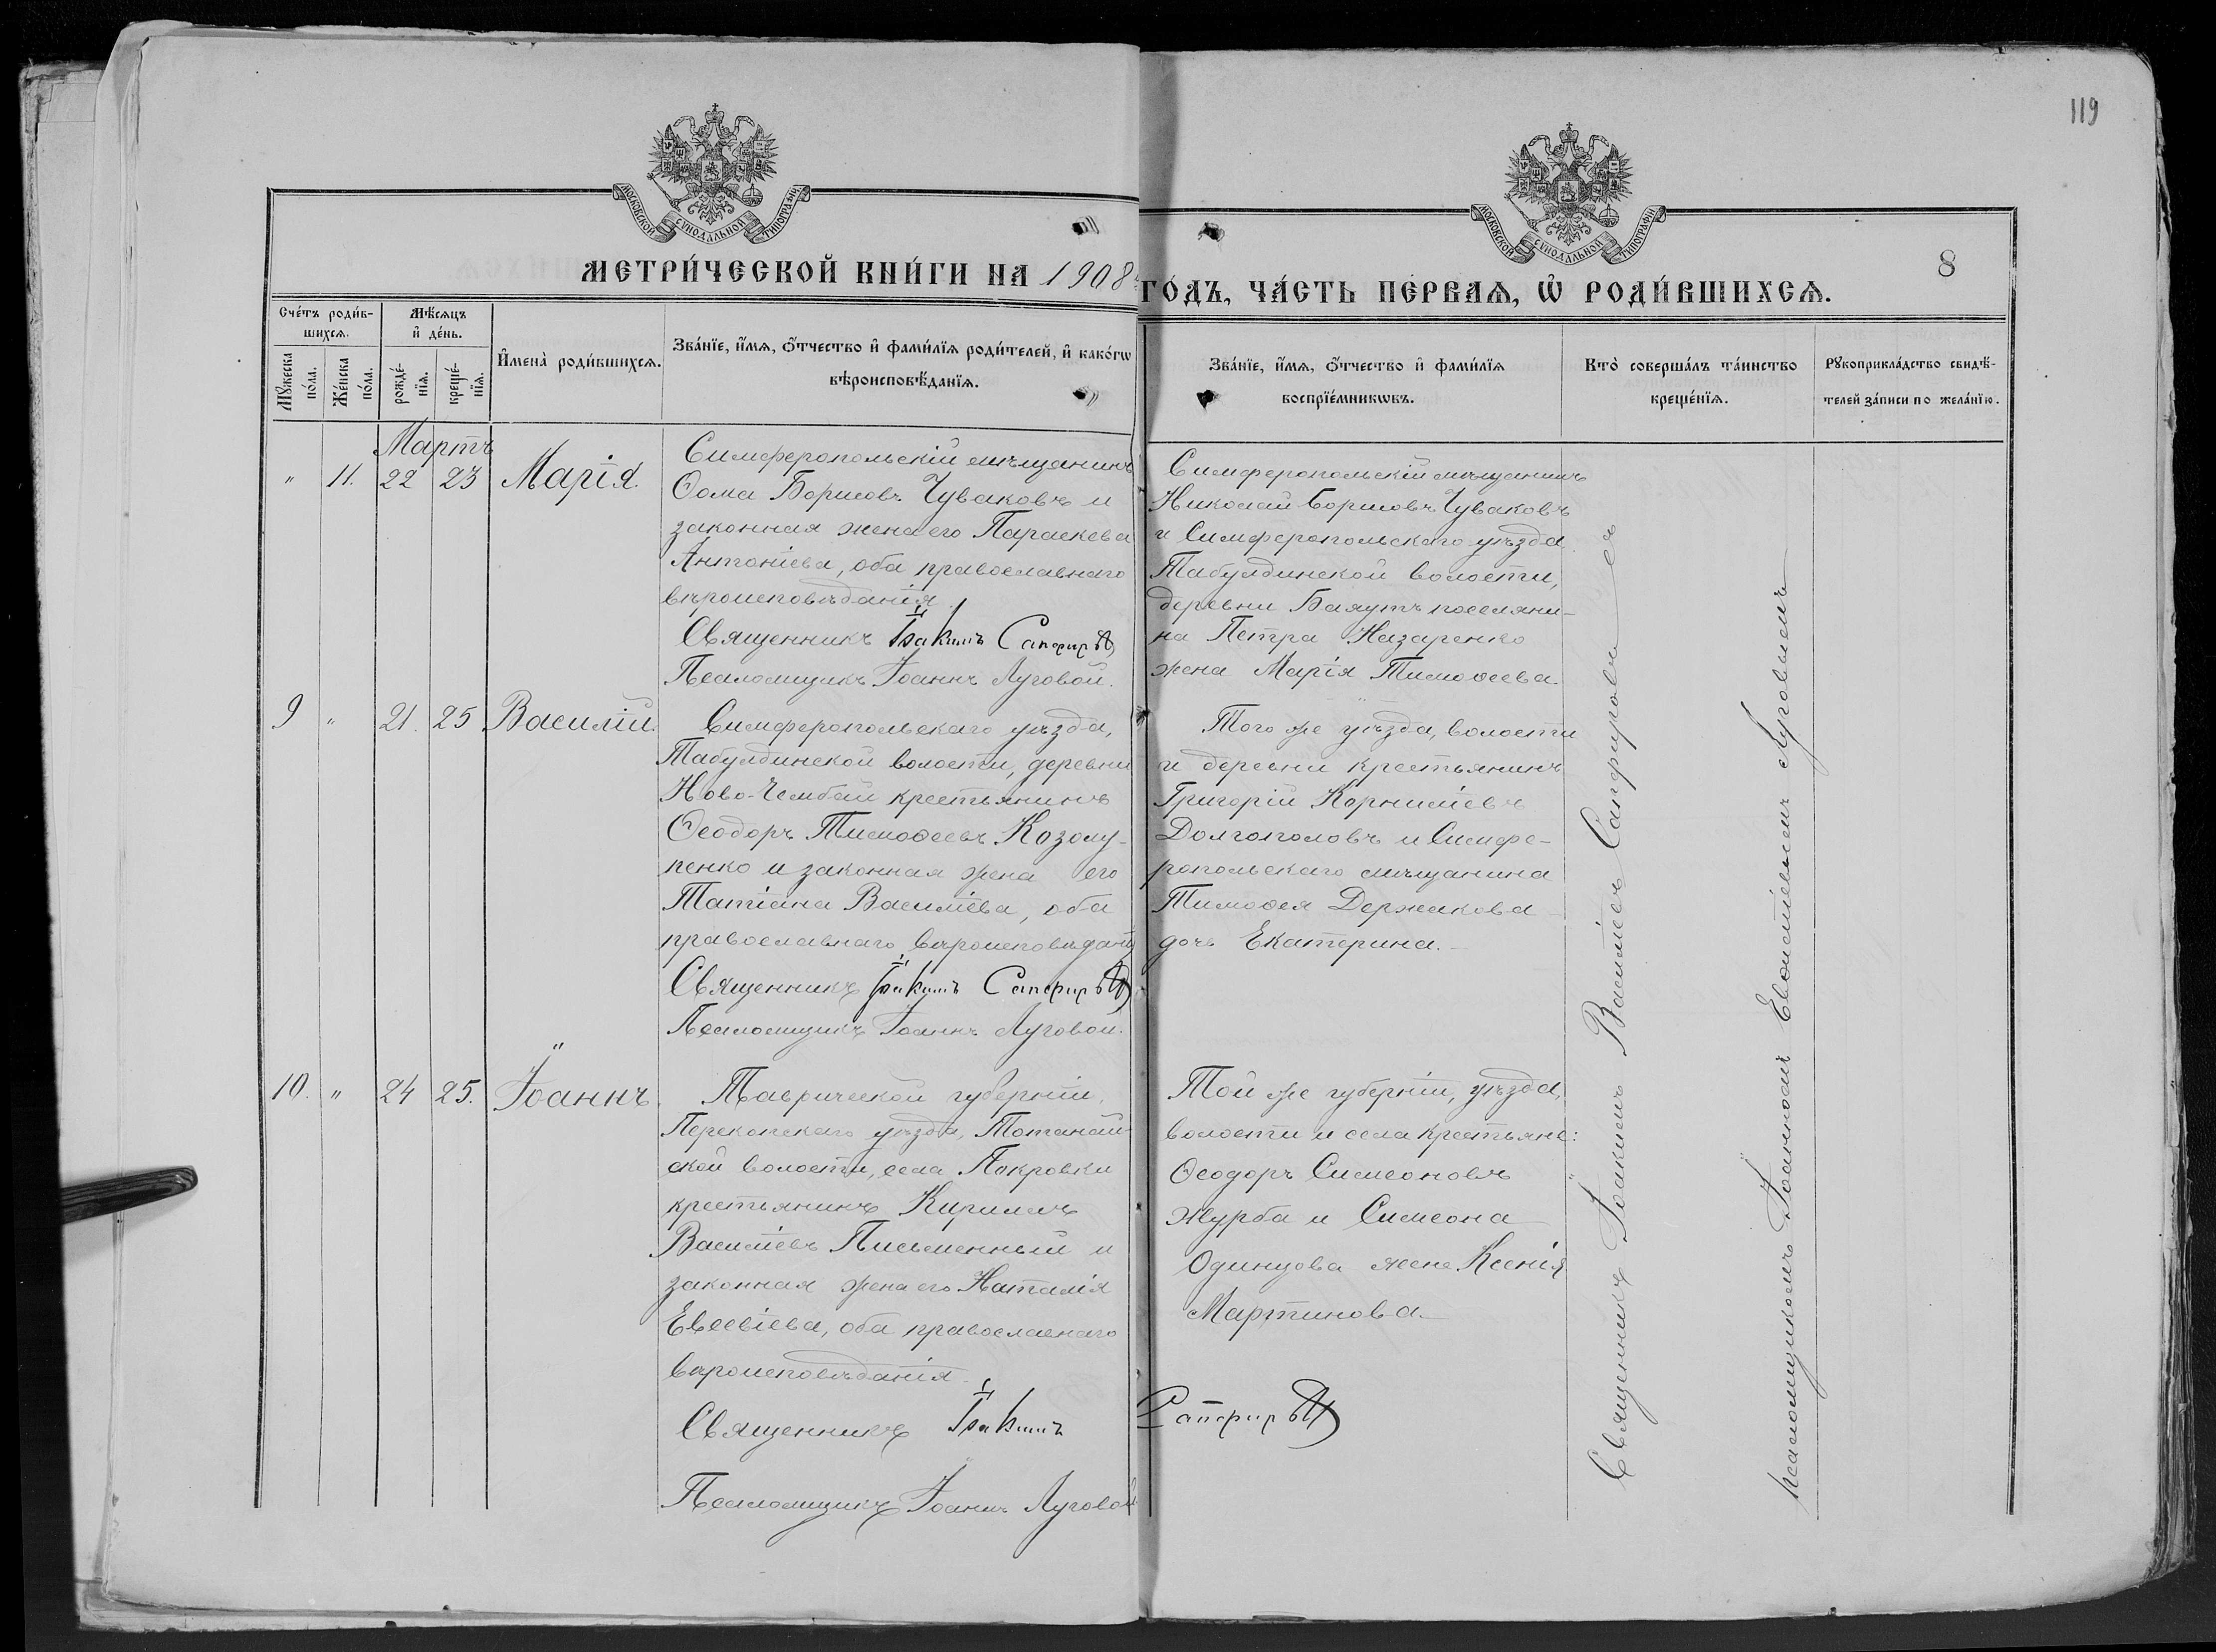 119
МОСКОВСКОЙ СѴНОДАЛЬНОЙ ТИПОГРАФІИ
МОСКОВСКОЙ СѴНОДАЛЬНОЙ ТИПОГРАФІИ
8
МЕТРИ́ЧЕСКОЙ КНИ́ГИ НА 1908
ГО́ДЪ, ЧА́СТЬ ПЕ́РВАѦ, Ѿ РОДИ́ВШИХСѦ.
Сче́тъ роди́в-
шихсѧ.
Мꙋ́жеска по́ла.
Же́нска по́ла.
Мѣ́сѧцъ
и҆ де́нь.
рожде́-
нїѧ.
креще́-
нїѧ.
И҆мена̀ роди́вшихсѧ.
Зва́нїе, и҆́мѧ, о҆́тчество и҆ фами́лїѧ роди́телей, и҆ како́гѡ
вѣроисповѣ́данїѧ.
Зва́нїе, и҆́мѧ, о҆́тчество и҆ фами́лїѧ
воспрїе́мникѡвъ.
Кто̀ соверша́лъ та́инство
креще́нїѧ.
Рꙋкоприкла́дство свидѣ́-
телей за́писи по жела́нїю.
Мартъ
" 11. 22 23 Марія.
Симферопольскій мѣщанинъ
Ѳома Борисовъ Чуваковъ и
законная жена его Параскева
Антоніева, оба православнаго
вѣроисповѣданія.
Священникъ Іоакимъ Сапфировъ
Псаломщикъ Іоаннъ Луговой.
Симферопольскій мѣщанинъ
Николай Борисовъ Чуваковъ
и Симферопольскаго уѣзда
Табулдинской волости,
деревни Баяутъ поселяни-
на Петра Назаренко
жена Марія Тимоѳеева.
9 " 21. 25 Василій.
Симферопольскаго уѣзда,
Табулдинской волости, деревни
Ново-Чембай крестьянинъ
Ѳеодоръ Тимоѳеевъ Козолу-
пенко и законная жена его
Татіана Василіева, оба
православнаго вѣроисповѣданія
Священникъ Іоакимъ Сапфировъ
Псаломщикъ Іоаннъ Луговой.
Того же уѣзда, волости
и деревни крестьянинъ
Григорій Корниліевъ
Долгополовъ и Симфе-
ропольскаго мѣщанина
Тимоѳея Держакова
дочь Екатерина.
10. " 24 25. Іоаннъ.
Таврической губерніи,
Перекопскаго уѣзда, Тотанай-
ской волости, села Покровки
крестьянинъ Кириллъ
Василіевъ Письменный и
законная жена его Наталія
Евсевіева, оба православнаго
вѣроисповѣданія.
Священникъ Іоакимъ Сапфировъ
Псаломщикъ Іоаннъ Луговой
Той же губерніи, уѣзда,
волости и села крестьяне:
Ѳеодоръ Симеоновъ
Журба и Симеона
Одинцова жена Ксенія
Мартинова.
Священникъ Іоакимъ Василіевъ Сапфировъ съ
псаломщикомъ Іоанномъ Луговымъ